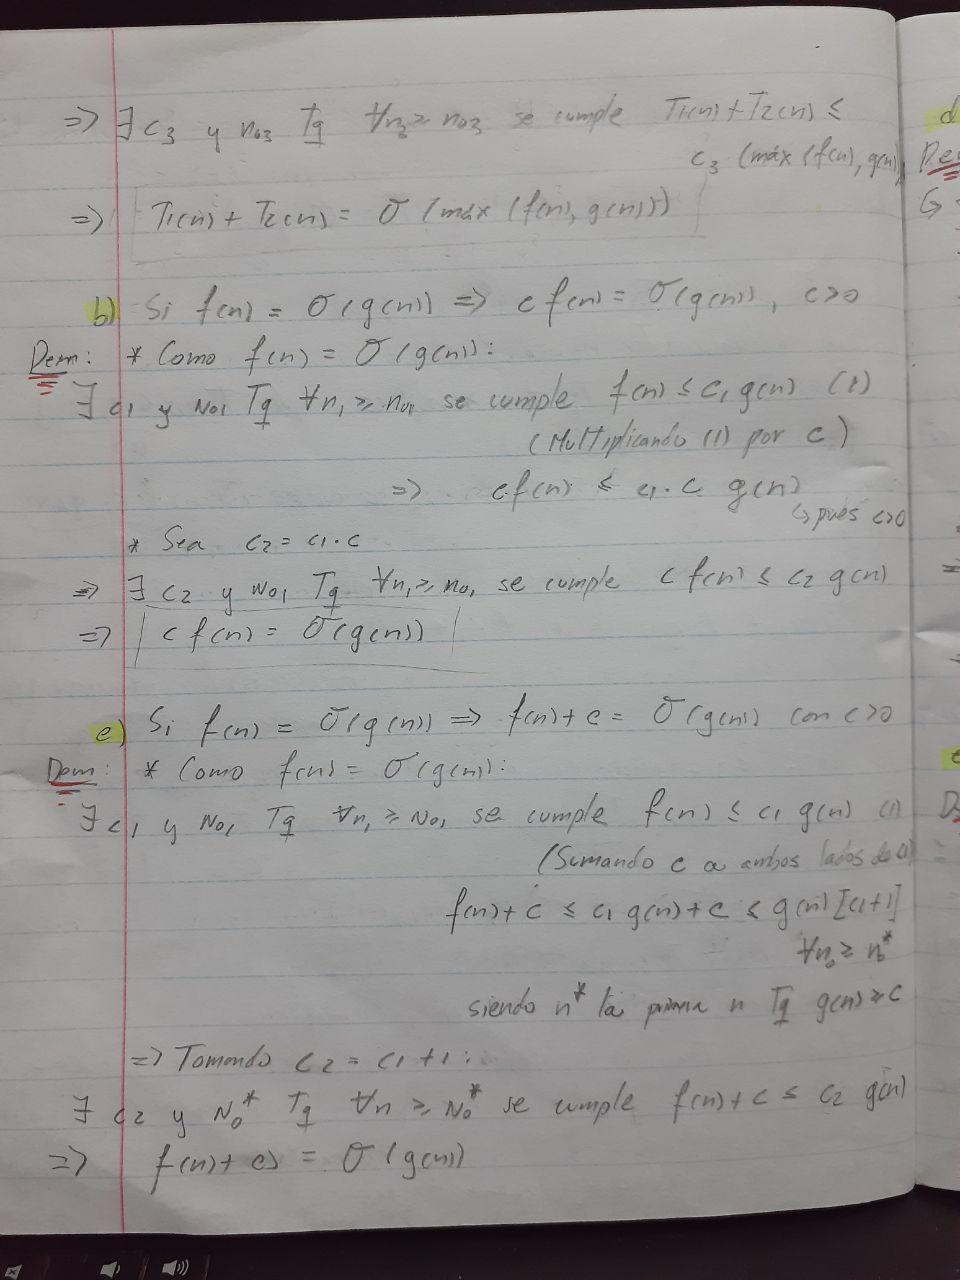 => ∃ c3 y n03 Tq ∀n3 ≥ n03 se cumple T1(n) + T2(n) ≤
c3 (máx (f(n), g(n))
=> T1(n) + T2(n) = O (máx (f(n), g(n)))
b) Si f(n) = O(g(n)) => c f(n) = O(g(n)), c>0
Dem: * Como f(n) = O(g(n)):
∃ c1 y N01 Tq ∀n1 ≥ n01 se cumple f(n) ≤ c1 g(n) (1)
(Multiplicando (1) por c)
=> c f(n) ≤ c1.c g(n)
↳ pues c>0
* Sea c2 = c1.c
=> ∃ c2 y N01 Tq ∀n1 ≥ n01 se cumple c f(n) ≤ c2 g(n)
=> c f(n) = O(g(n))
c) Si f(n) = O(g(n)) => f(n) + c = O(g(n)) con c>0
Dem: * Como f(n) = O(g(n)):
∃ c1 y N01 Tq ∀n1 ≥ N01 se cumple f(n) ≤ c1 g(n) (1)
(Sumando c a ambos lados de (1)
f(n) + c ≤ c1 g(n) + c ≤ g(n) [c1+1]
∀n0 ≥ n0*
siendo n* la primera n Tq g(n) ≥ c
=> Tomando c2 = c1 + 1:
∃ c2 y N0* Tq ∀n ≥ N0* se cumple f(n) + c ≤ c2 g(n)
=> f(n) + c) = O(g(n))
d
De
↳
e
D